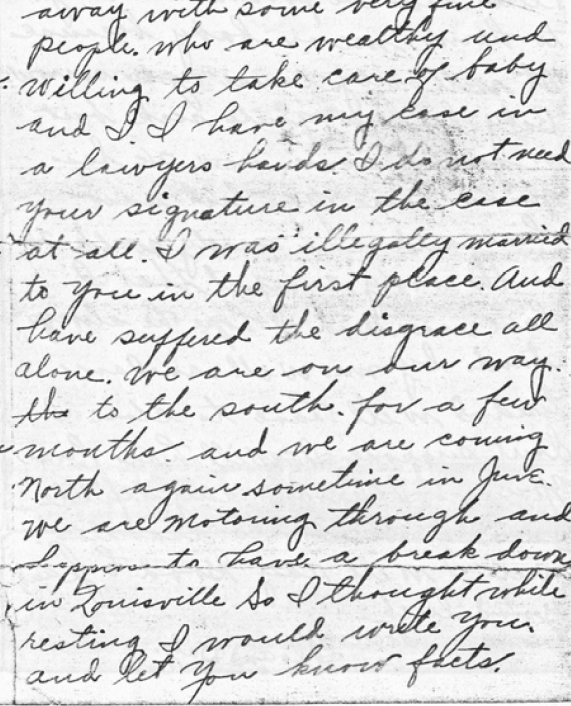 away with some very fine
people. who are wealthy and
willing to take care of baby
and I I have my case in
a lawyers hands. I do not need
your signature in the case
at all. I was illegally married
to you in the first place. And
have suffered the disgrace all
alone. We are on our way.
to the south. for a few
months and we are coming
North again sometime in June
we are motoring through and
happens to have a break down
in Louisville So I thought while
resting I would write you
and let you know facts.